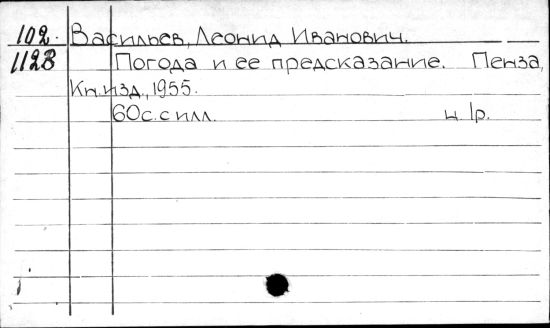 102. Васильев, Леонид Иванович.
112В Погода и ее предсказание. Пенза,
Кн.изд., 1955.
60с. с илл. ц 1р.